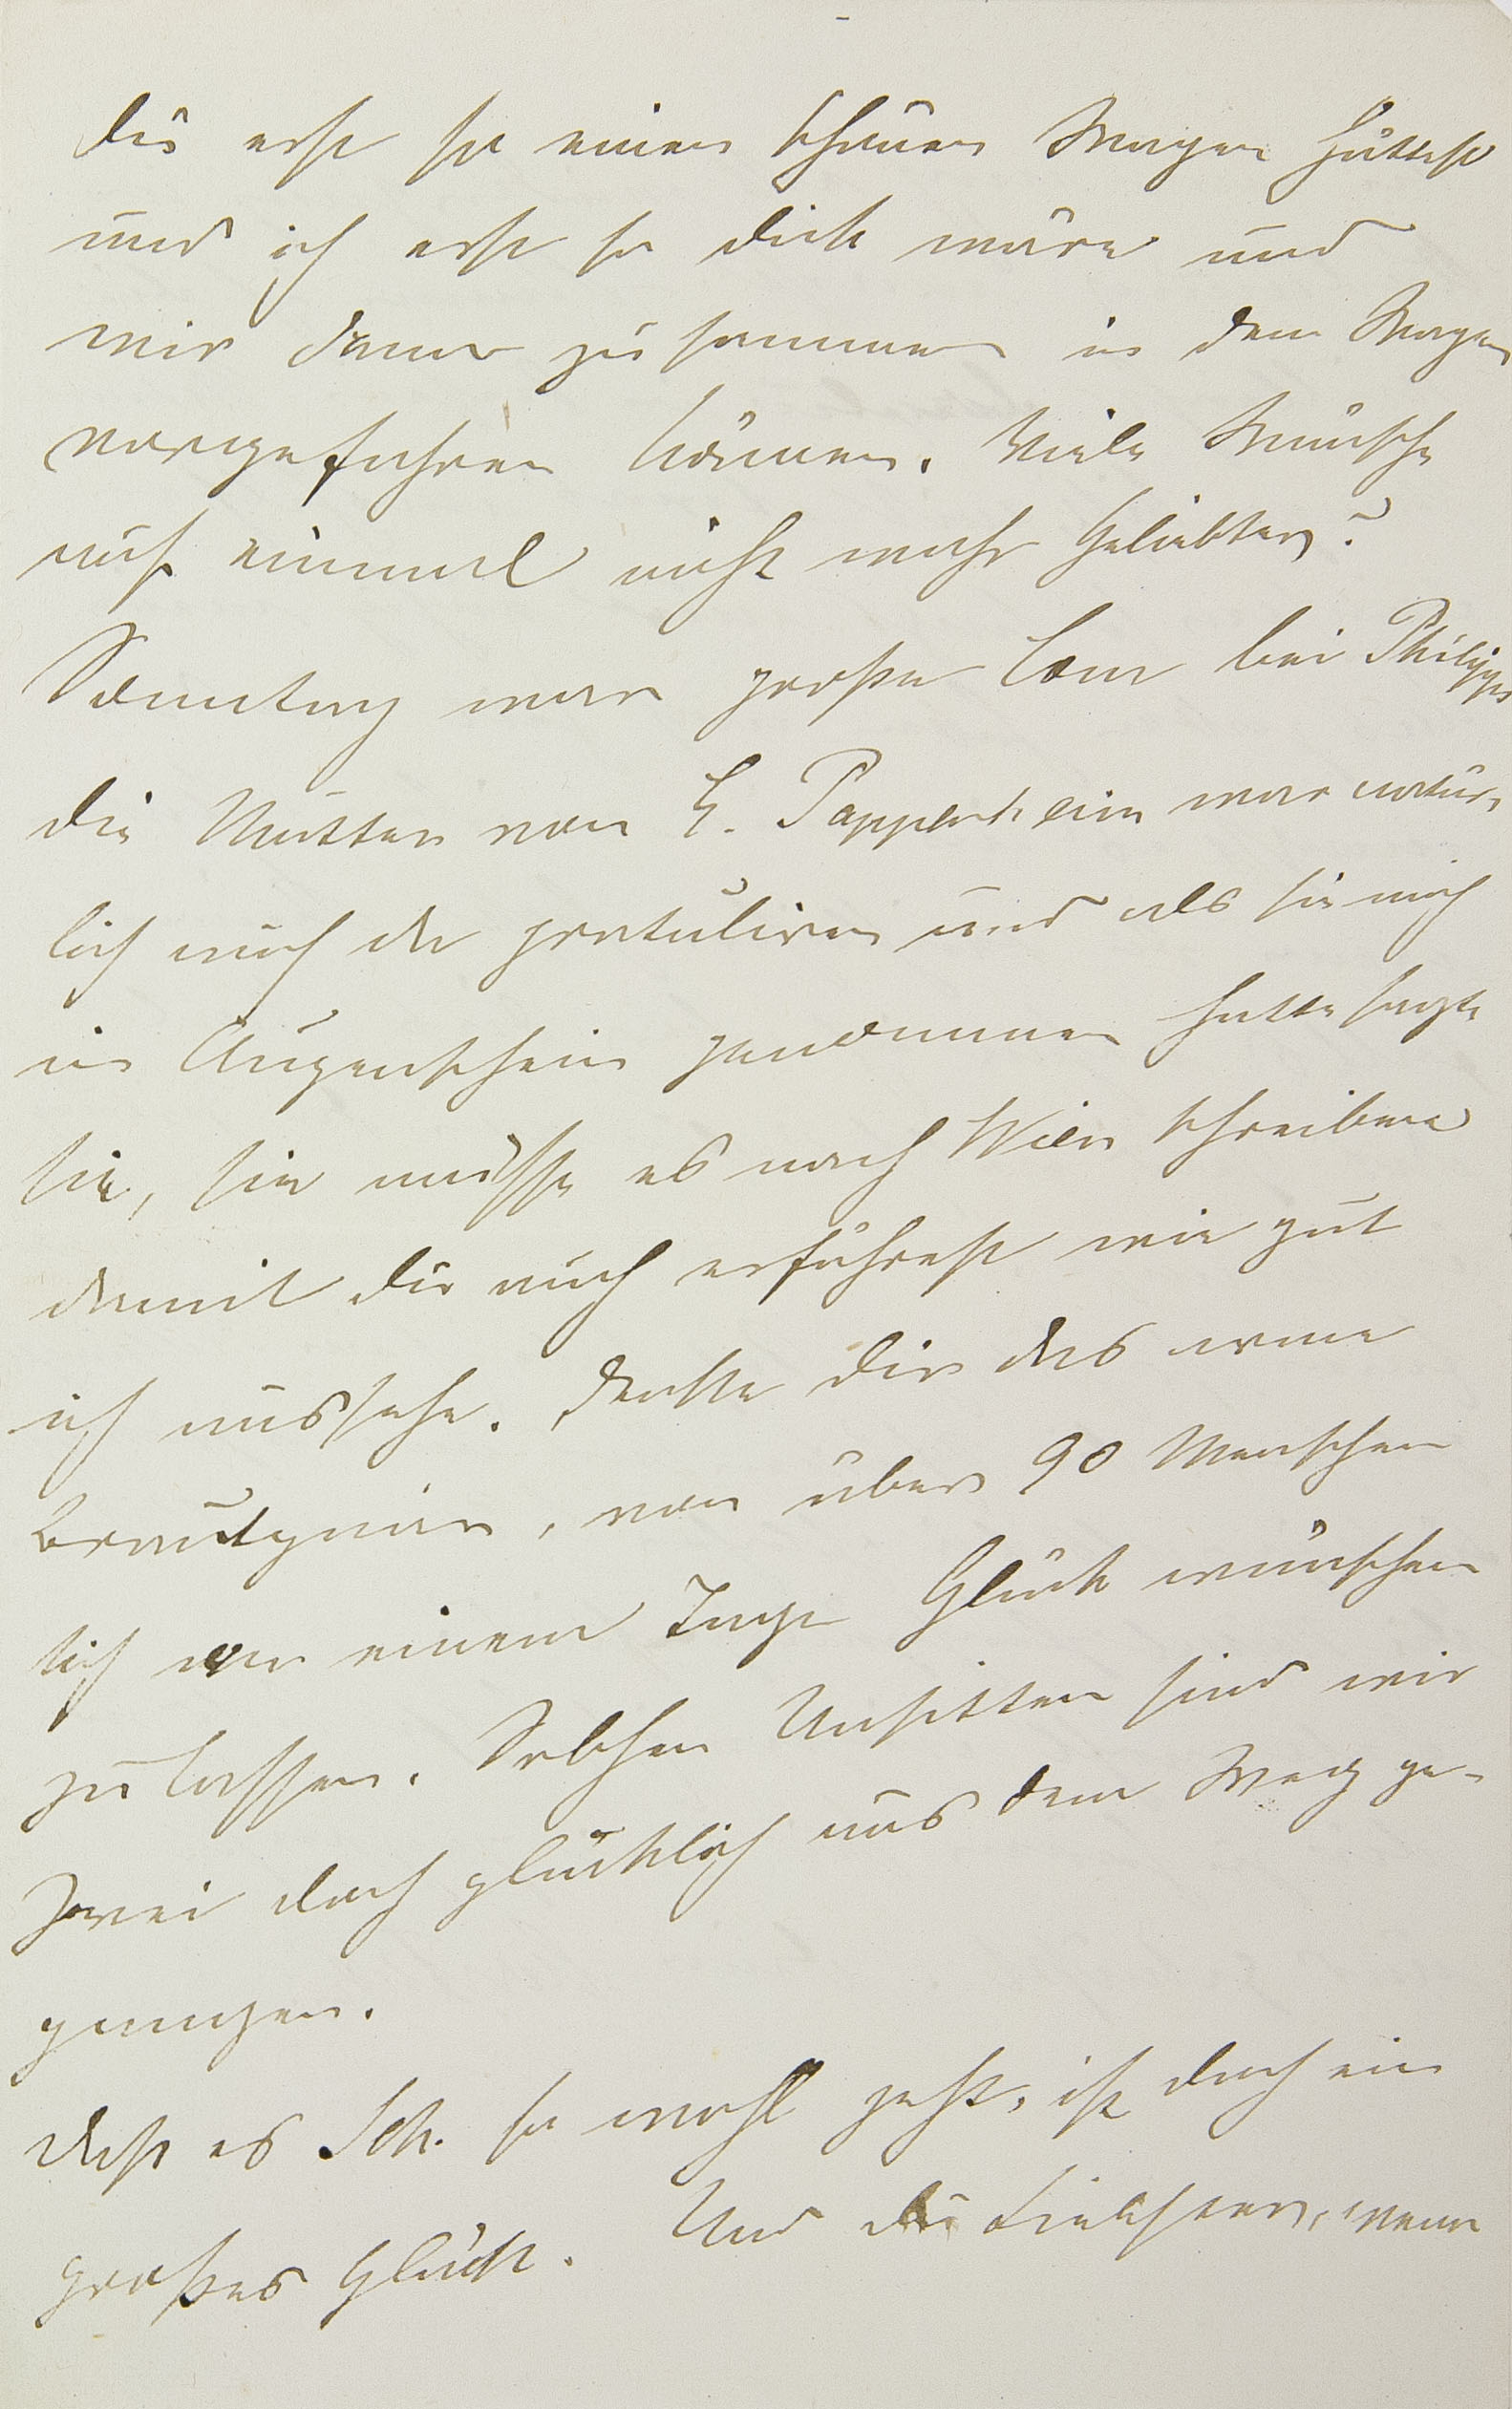 Du erst so einen schönen Wagen hättest
und ich erst so dick wäre und
wir dann zusammen in dem Wagen
vorgefahren kämen. Viele Wünsche
auf einmal nicht wahr Geliebter?
Sonntag war große Cour bei Philipps
die Mutter von E. Pappenheim war natür-
lich auch da gratuliren und als sie mich
in Augenschein genommen hatte sagte
sie, sie müsse es nach Wien schreiben
damit du auch erführest wie gut
ich aussehe. Denke dir das arme
Brautpaar, von über 90 Menschen
sich an einem Tage Glück wünschen
zu lassen. Solchen Unsitten sind wir
Zwei doch glücklich aus dem Weg ge-
gangen.
Daß es Sch. so wohl geht, ist doch ein
großes Glück. Und du Liebster, wenn